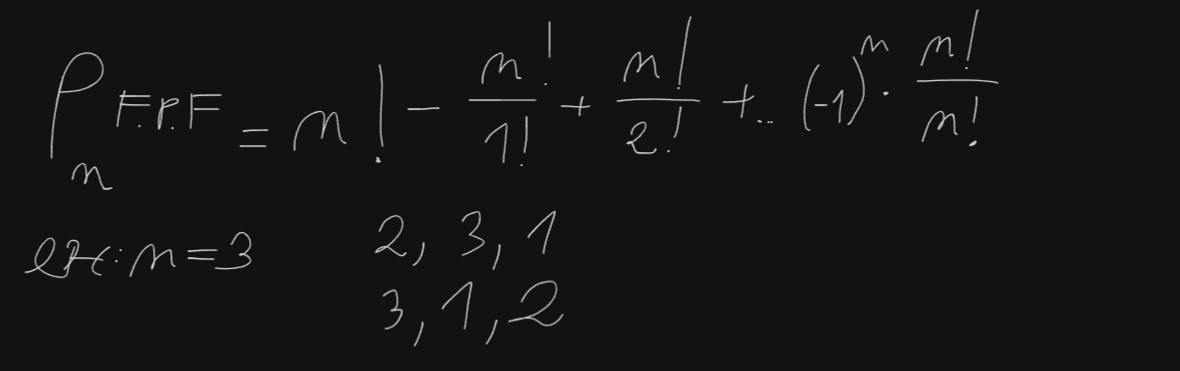 P_n F.P.F = n! - n!/1! + n!/2! + .. (-1)^n · n!/n!
ex: n=3 2, 3, 1
3, 1, 2